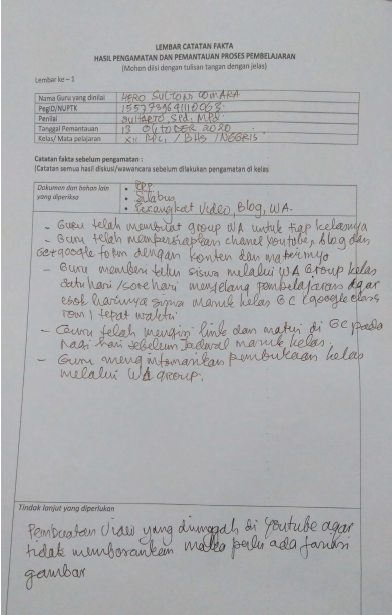 LEMBAR CATATAN FAKTA
HASIL PENGAMATAN DAN PEMANTAUAN PROSES PEMBELAJARAN
(Mohon diisi dengan tulisan tangan dengan jelas)
Lembar ke – 1
Nama Guru yang dinilai HERO SULTONI COMARA
PegID/NUPTK
Penilai SUTARTO, SPd. MPd
Tanggal Pemantauan 13 OKTOBER 2020
Kelas/ Mata pelajaran / BHS INGGRIS
Catatan fakta sebelum pengamatan :
(Catatan semua hasil diskusi/wawancara sebelum dilakukan pengamatan di kelas
Dokumen dan bahan lain • RPP
yang diperiksa • Silabus
• Perangkat Video, Blog, WA.
- Guru telah membuat group WA untuk tiap kelasnya
- Guru telah mempersiapkan chanel youtube, blog dan
google form dengan konten dan materinya
- Guru memberi tahu siswa melalui WA Group kelas
satu hari /sore hari menjelang pembelajaran agar
esok harinya siswa masuk kelas GC (google class
room) tepat waktu
- Guru telah mengisi link dan materi di GC pada
pagi hari sebelum jadwal masuk kelas.
- Guru menginformasikan pembukaan kelas
melalui WA group.
Tindak lanjut yang diperlukan
Pembuatan Video yang diunggah di youtube agar
tidak membosankan maka perlu ada
gambar